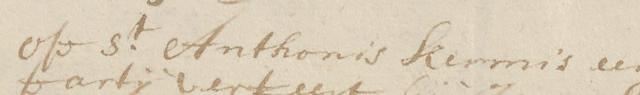 op S.t Anthonis kermis een
partij verteert